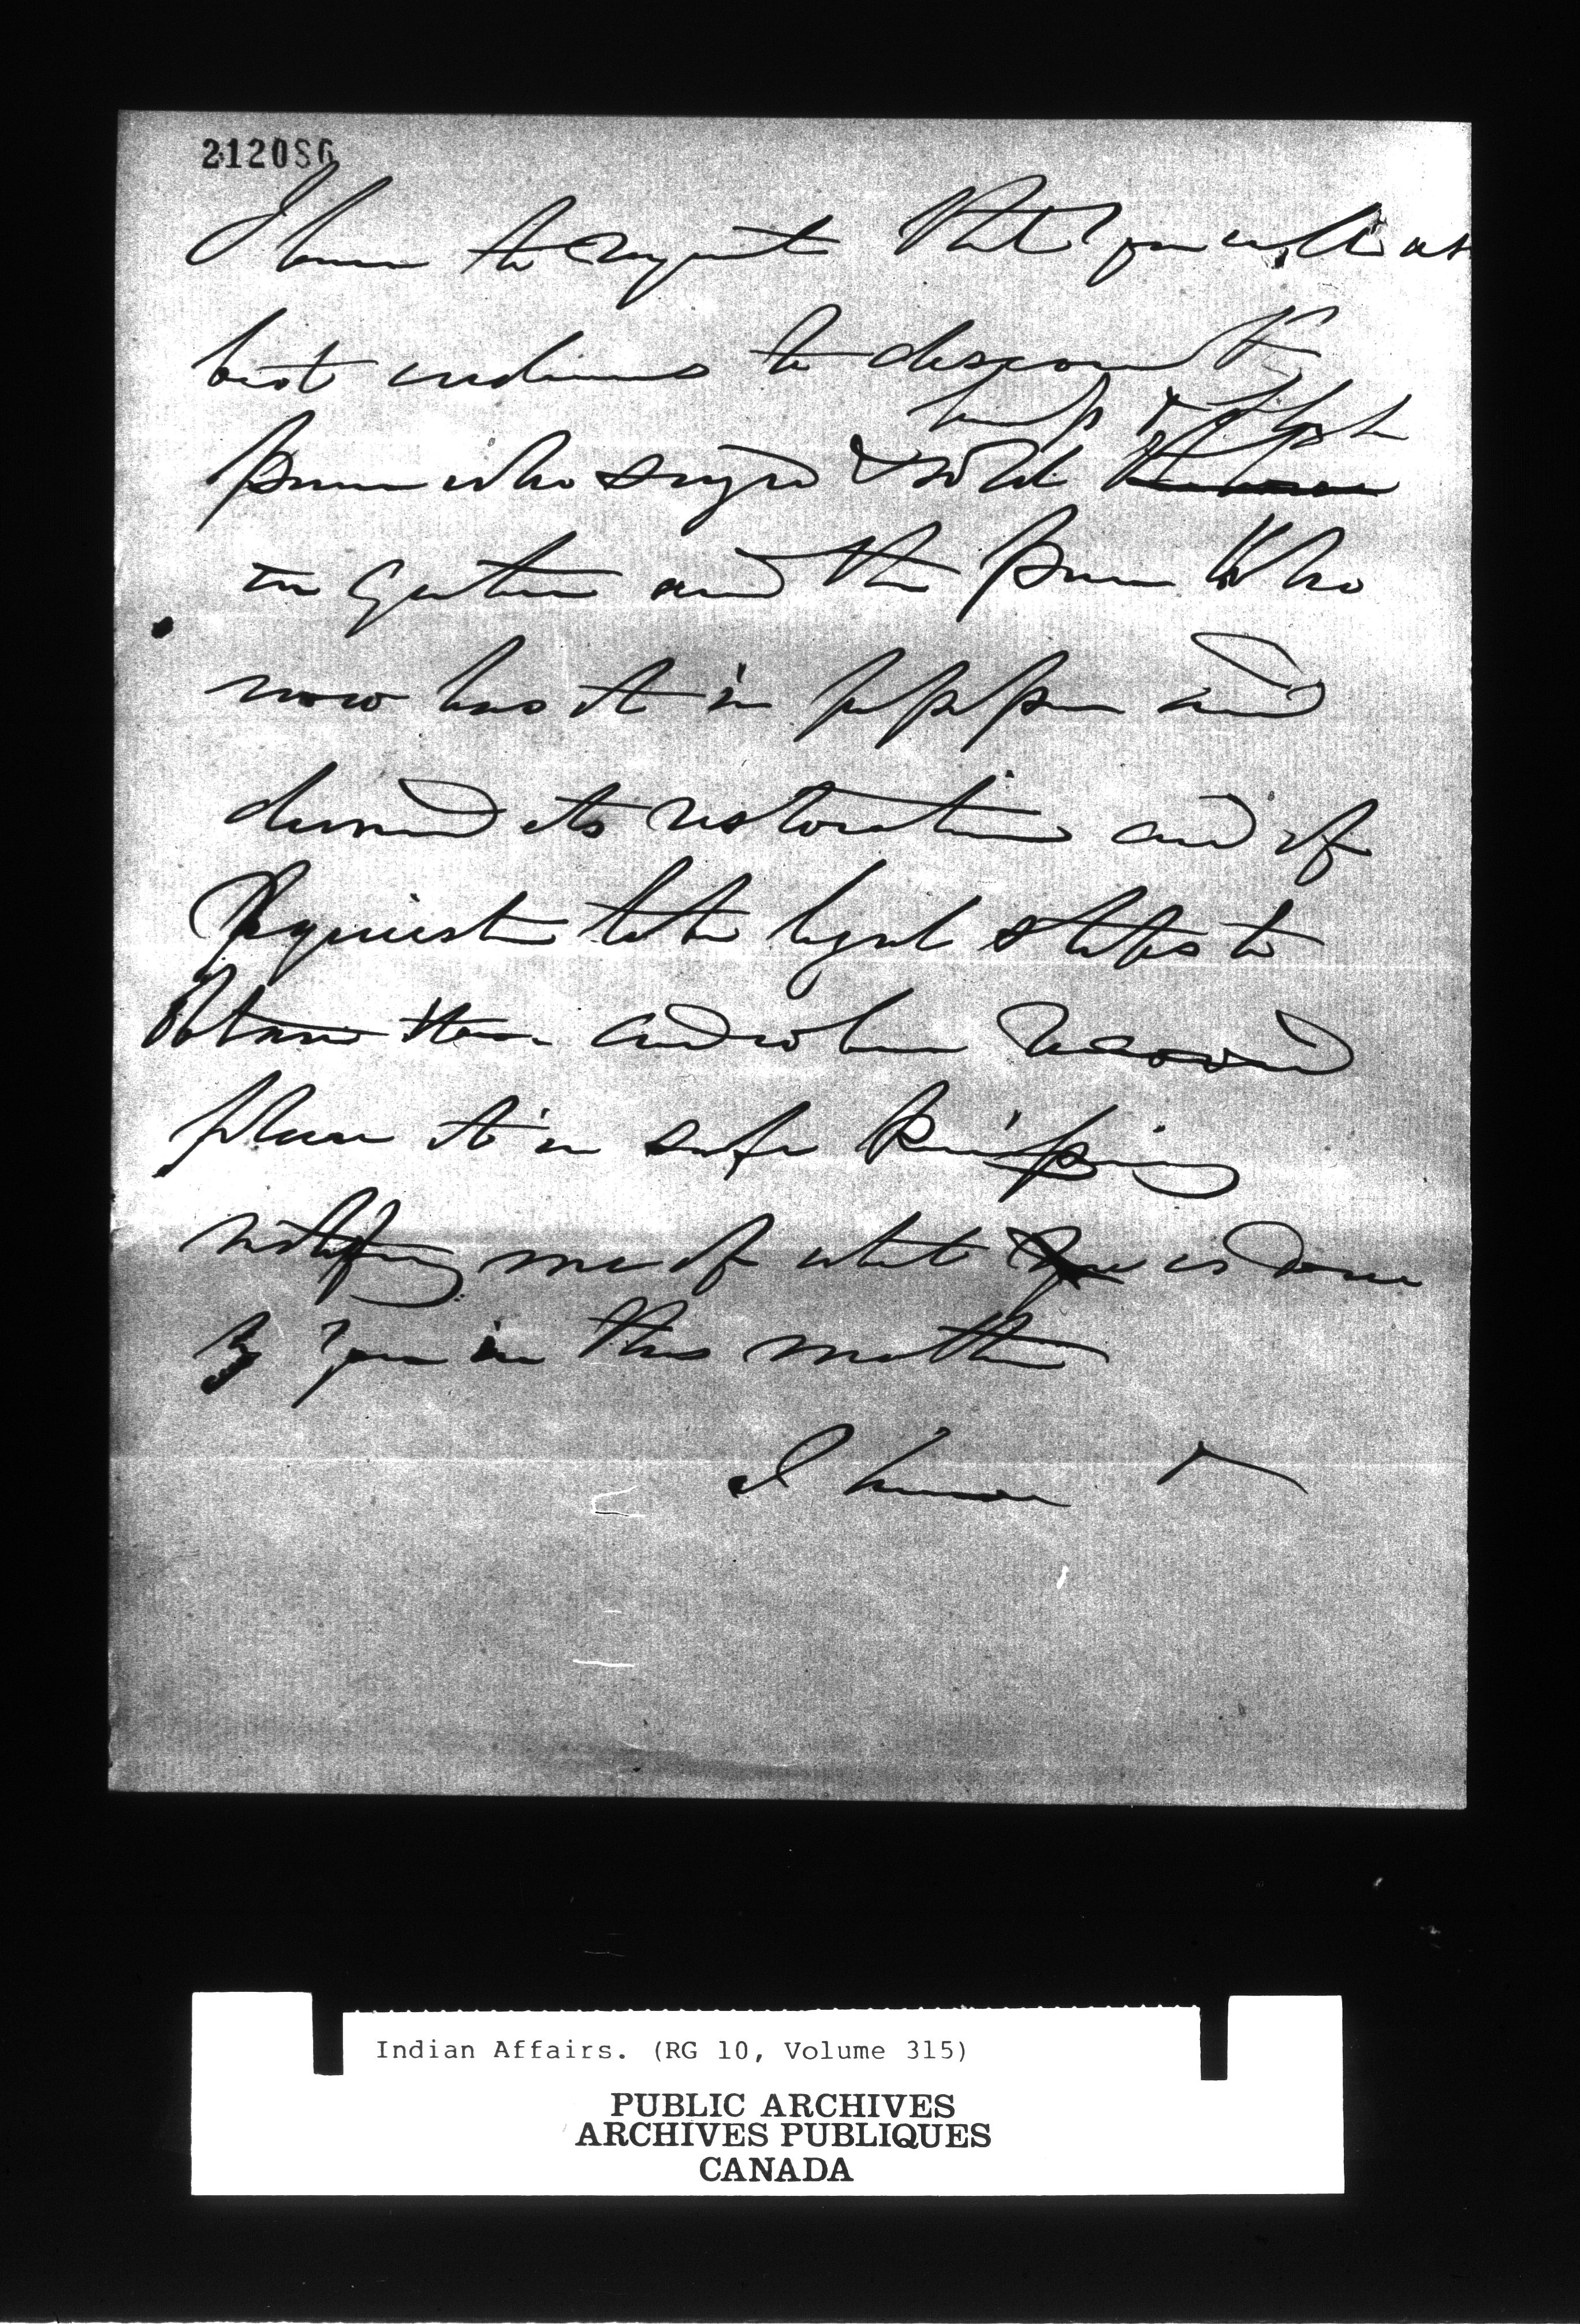 212086
I have to request that you will as
best endeavours to discover the
lamps & telescope
person who seized & sold
in question and the person who
now has it in possession and
demand its restoration and if
Requisite take legal steps to
obtain them and when
place it in safe keeping
notifying me of what is done
by you in this matter
I have &
Indian Affairs. (RG 10, Volume 315)
PUBLIC ARCHIVES
ARCHIVES PUBLIQUES
CANADA